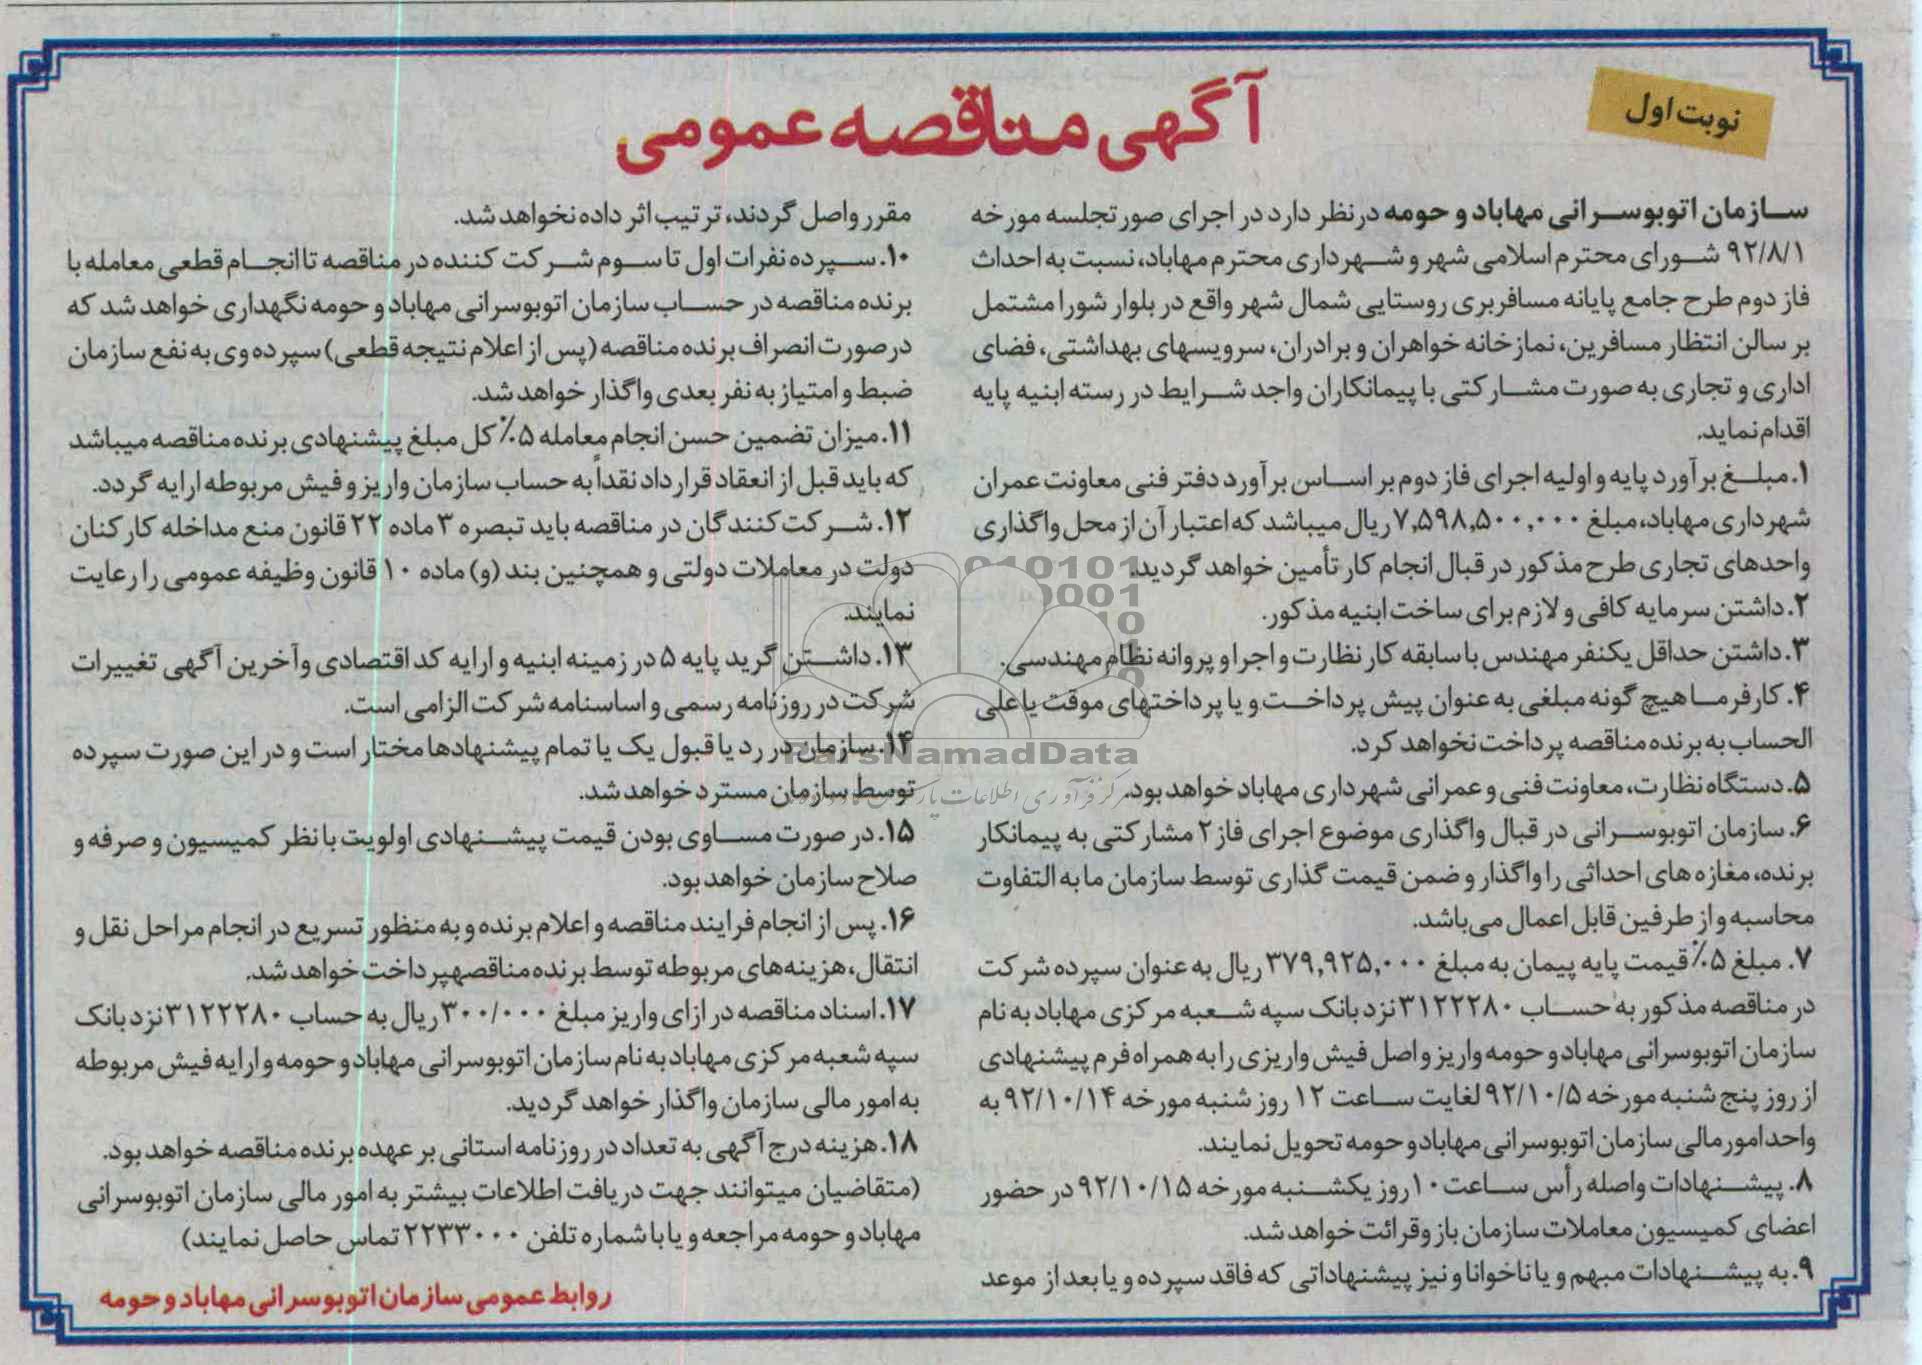 نوبت اول
آگهی مناقصه عمومی
سازمان اتوبوسرانی مهاباد و حومه درنظر دارد در اجرای صورتجلسه مورخه
۹۲/۸/۱ شورای محترم اسلامی شهر و شهرداری محترم مهاباد، نسبت به احداث
فاز دوم طرح جامع پایانه مسافربری روستایی شمال شهر واقع در بلوار شورا مشتمل
بر سالن انتظار مسافرین، نمازخانه خواهران و برادران، سرویسهای بهداشتی، فضای
اداری و تجاری به صورت مشارکتی با پیمانکاران واجد شرایط در رسته ابنیه پایه
اقدام نماید.
۱. مبلغ برآورد پایه و اولیه اجرای فاز دوم بر اساس برآورد دفتر فنی معاونت عمران
شهرداری مهاباد، مبلغ ۷,۵۹۸,۵۰۰,۰۰۰ ریال میباشد که اعتبار آن از محل واگذاری
واحدهای تجاری طرح مذکور در قبال انجام کار تأمین خواهد گردید.
۲. داشتن سرمایه کافی و لازم برای ساخت ابنیه مذکور.
۳. داشتن حداقل یکنفر مهندس با سابقه کار نظارت و اجرا و پروانه نظام مهندسی.
۴. کارفرما هیچ گونه مبلغی به عنوان پیش پرداخت و یا پرداختهای موقت یا علی
الحساب به برنده مناقصه پرداخت نخواهد کرد.
۵. دستگاه نظارت، معاونت فنی و عمرانی شهرداری مهاباد خواهد بود.
۶. سازمان اتوبوسرانی در قبال واگذاری موضوع اجرای فاز ۲ مشارکتی به پیمانکار
برنده، مغازه های احداثی را واگذار و ضمن قیمت گذاری توسط سازمان ما به التفاوت
محاسبه و از طرفین قابل اعمال می‌باشد.
۷. مبلغ ۵٪ قیمت پایه پیمان به مبلغ ۳۷۹,۹۲۵,۰۰۰ ریال به عنوان سپرده شرکت
در مناقصه مذکور به حساب ۳۱۲۲۲۸۰ نزد بانک سپه شعبه مرکزی مهاباد به نام
سازمان اتوبوسرانی مهاباد و حومه واریز و اصل فیش واریزی را به همراه فرم پیشنهادی
از روز پنج شنبه مورخه ۹۲/۱۰/۵ لغایت ساعت ۱۲ روز شنبه مورخه ۹۲/۱۰/۱۴ به
واحد امور مالی سازمان اتوبوسرانی مهاباد و حومه تحویل نمایند.
۸. پیشنهادات واصله رأس ساعت ۱۰ روز یکشنبه مورخه ۹۲/۱۰/۱۵ در حضور
اعضای کمیسیون معاملات سازمان باز و قرائت خواهد شد.
۹. به پیشنهادات مبهم و یا ناخوانا و نیز پیشنهاداتی که فاقد سپرده و یا بعد از موعد
مقرر واصل گردند، ترتیب اثر داده نخواهد شد.
۱۰. سپرده نفرات اول تا سوم شرکت کننده در مناقصه تا انجام قطعی معامله با
برنده مناقصه در حساب سازمان اتوبوسرانی مهاباد و حومه نگهداری خواهد شد که
درصورت انصراف برنده مناقصه (پس از اعلام نتیجه قطعی) سپرده وی به نفع سازمان
ضبط و امتیاز به نفر بعدی واگذار خواهد شد.
۱۱. میزان تضمین حسن انجام معامله ۵٪ کل مبلغ پیشنهادی برنده مناقصه میباشد
که باید قبل از انعقاد قرارداد نقداً به حساب سازمان واریز و فیش مربوطه ارایه گردد.
۱۲. شرکت کنندگان در مناقصه باید تبصره ۳ ماده ۲۲ قانون منع مداخله کارکنان
دولت در معاملات دولتی و همچنین بند (و) ماده ۱۰ قانون وظیفه عمومی را رعایت
نمایند.
۱۳. داشتن گرید پایه ۵ در زمینه ابنیه و ارایه کد اقتصادی و آخرین آگهی تغییرات
شرکت در روزنامه رسمی و اساسنامه شرکت الزامی است.
۱۴. سازمان در رد یا قبول یک یا تمام پیشنهادها مختار است و در این صورت سپرده
توسط سازمان مسترد خواهد شد.
۱۵. در صورت مساوی بودن قیمت پیشنهادی اولویت با نظر کمیسیون و صرفه و
صلاح سازمان خواهد بود.
۱۶. پس از انجام فرایند مناقصه و اعلام برنده و به منظور تسریع در انجام مراحل نقل و
انتقال، هزینه‌های مربوطه توسط برنده مناقصهپرداخت خواهد شد.
۱۷. اسناد مناقصه در ازای واریز مبلغ ۳۰۰/۰۰۰ ریال به حساب ۳۱۲۲۲۸۰ نزد بانک
سپه شعبه مرکزی مهاباد به نام سازمان اتوبوسرانی مهاباد و حومه و ارایه فیش مربوطه
به امور مالی سازمان واگذار خواهد گردید.
۱۸. هزینه درج آگهی به تعداد در روزنامه استانی بر عهده برنده مناقصه خواهد بود.
(متقاضیان میتوانند جهت دریافت اطلاعات بیشتر به امور مالی سازمان اتوبوسرانی
مهاباد و حومه مراجعه و یا با شماره تلفن ۲۲۳۳۰۰۰ تماس حاصل نمایند)
روابط عمومی سازمان اتوبوسرانی مهاباد و حومه
ParsNamadData